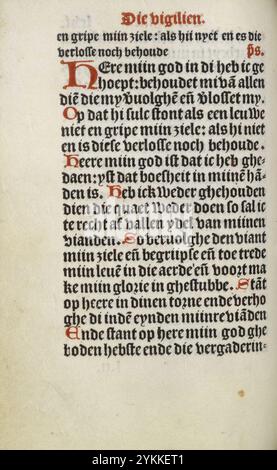 Die vigilien.
en gripe mijn ziele: als hij nyet en es die
verlosse noch behoude ps.
HEre mijn god in di heb ic ge
hoept: behoudet mi vā allen
diē die my vuolghē eñ vlosset my.
Op dat hi sulc stont als een leuwe
niet en gripe mijn ziele: als hi niet
en is diese verlosse noch behoude.
Heere mijn god ist dat ic heb ghe-
daen: yst dat boesheit in minē hā-
den is. Heb ick weder ghehouden
dien die quaet weder doen so sal ic
te recht af vallen ydel van mijnen
vianden. So veruolghe den viant
mijn ziele eñ begrijpse eñ toe trede
mijn leuē in die aerde: eñ voort ma
ke mijn glorie in ghestubbe. Stāt
op heere in dinen torne ende verho
ghe di in dē eynden mijnre viādē
Ende stant op here mijn god ghe
boden hebste ende die vergaderin-
alamy
Image ID: 2YKKET1
www.alamy.com